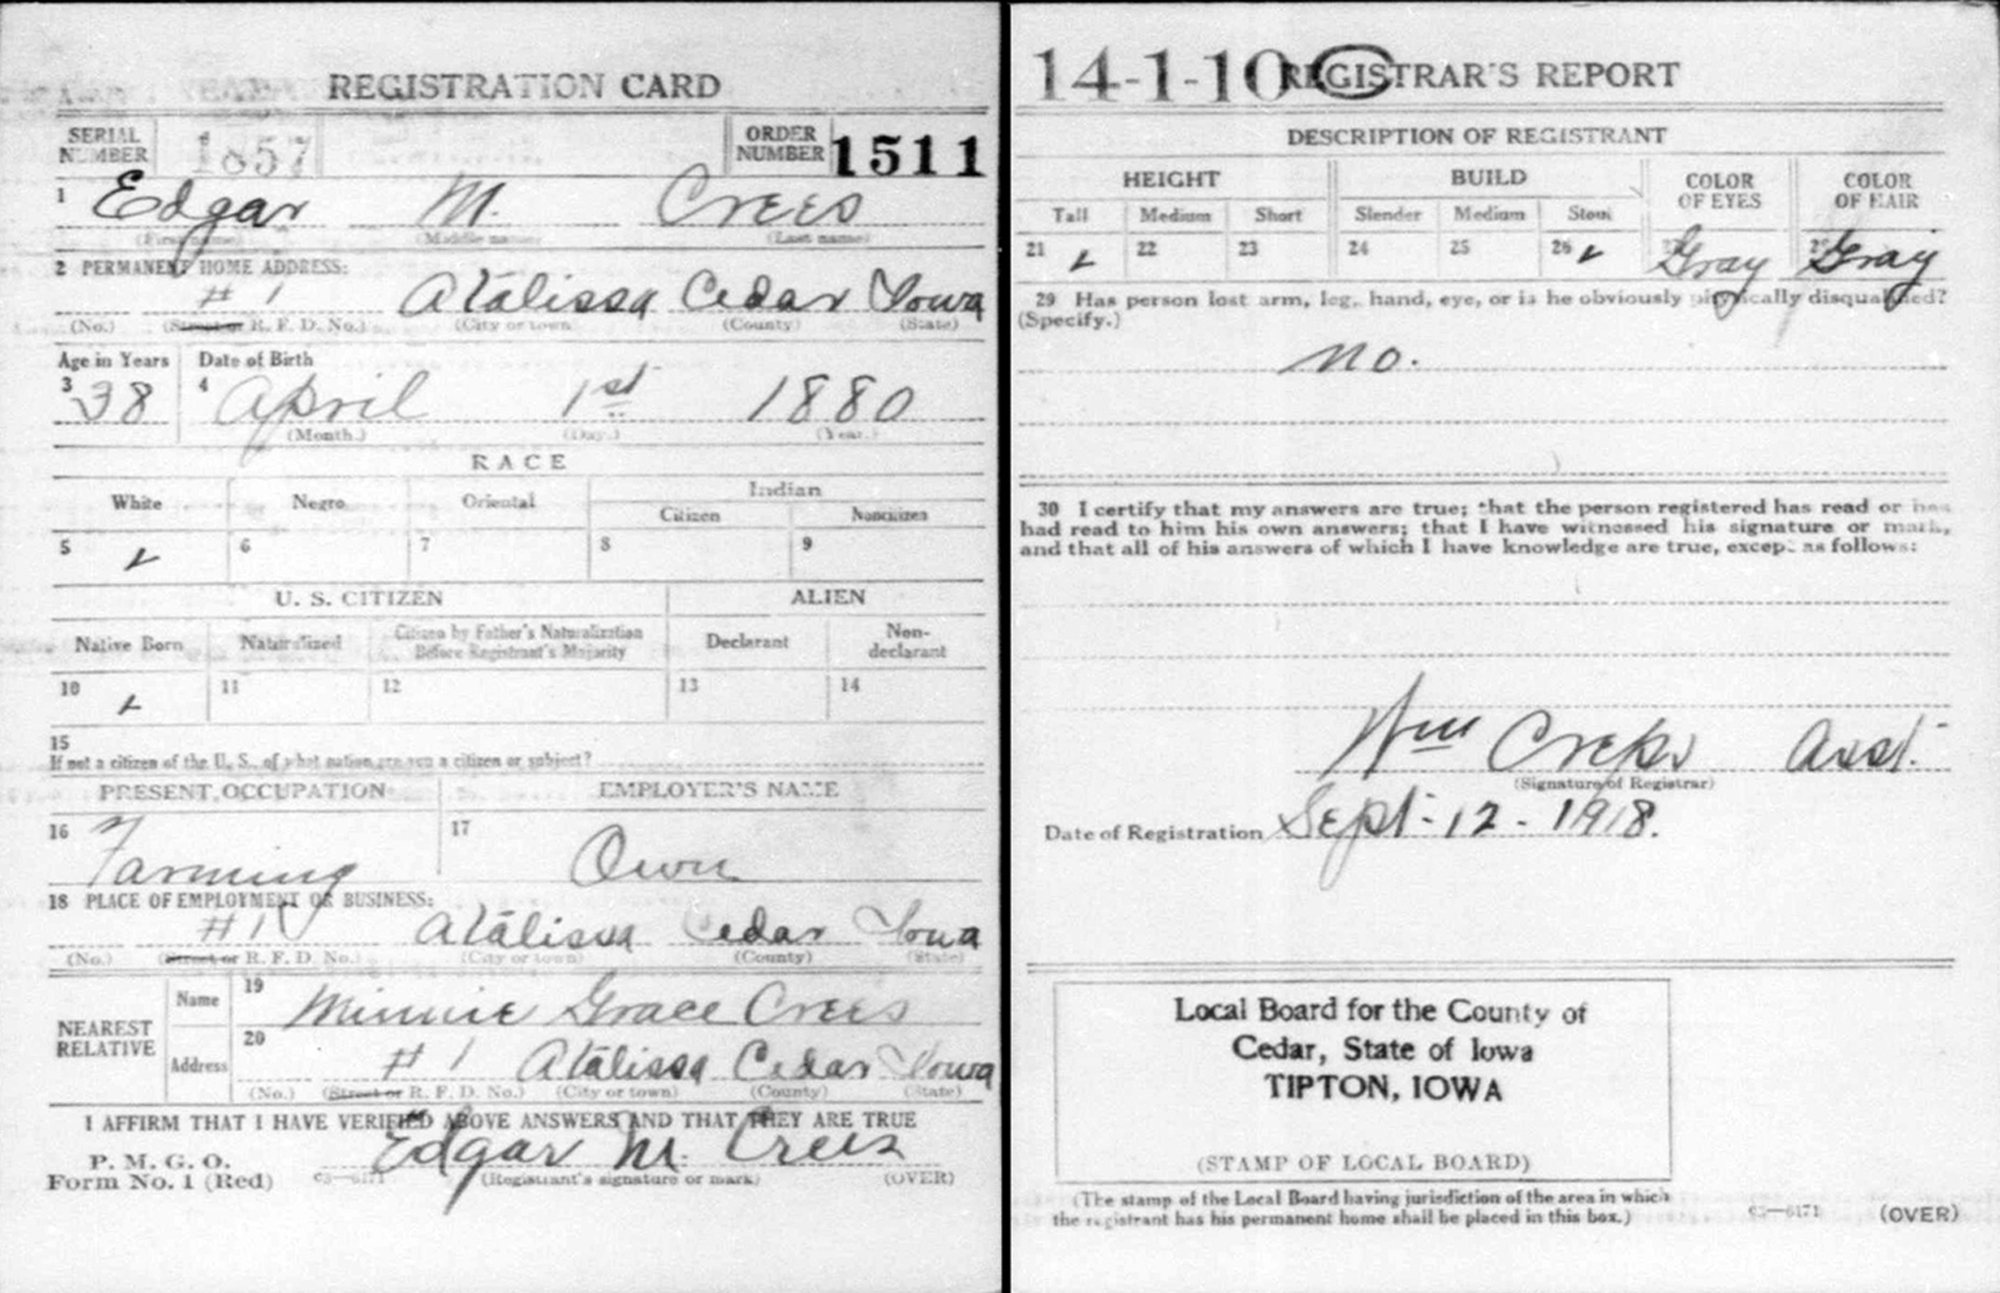 REGISTRATION CARD
SERIAL NUMBER 1857 ORDER NUMBER 1511
1 Edgar M. Crees
(First name) (Middle name) (Last name)
2 PERMANENT HOME ADDRESS:
# 1 Atalissa Cedar Iowa
(No.) (Street or R. F. D. No.) (City or town) (County) (State)
Age in Years Date of Birth
3 38 4 April 1st 1880
(Month.) (Day.) (Year.)
RACE
White Negro Oriental Indian
Citizen Noncitizen
5 ✓ 6 7 8 9
U. S. CITIZEN ALIEN
Native Born Naturalized Citizen by Father's Naturalization Before Registrant's Majority Declarant Non-declarant
10 ✓ 11 12 13 14
15
If not a citizen of the U. S., of what nation are you a citizen or subject?
PRESENT OCCUPATION EMPLOYER'S NAME
16 Farming 17 Own
18 PLACE OF EMPLOYMENT OR BUSINESS:
# 1 Atalissa Cedar Iowa
(No.) (Street or R. F. D. No.) (City or town) (County) (State)
NEAREST RELATIVE Name 19 Minnie Grace Crees
Address 20 # 1 Atalissa Cedar Iowa
(No.) (Street or R. F. D. No.) (City or town) (County) (State)
I AFFIRM THAT I HAVE VERIFIED ABOVE ANSWERS AND THAT THEY ARE TRUE
P. M. G. O.
Form No. 1 (Red) Edgar M. Crees
03—6171 (Registrant's signature or mark) (OVER)
14-1-10 C REGISTRAR'S REPORT
DESCRIPTION OF REGISTRANT
HEIGHT BUILD COLOR OF EYES COLOR OF HAIR
Tall Medium Short Slender Medium Stout
21 ✓ 22 23 24 25 26 ✓ 27 Gray 28 Gray
29 Has person lost arm, leg, hand, eye, or is he obviously physically disqualified?
(Specify.)
No.
30 I certify that my answers are true; that the person registered has read or has
had read to him his own answers; that I have witnessed his signature or mark,
and that all of his answers of which I have knowledge are true, except as follows:
Wm Asst.
(Signature of Registrar)
Date of Registration Sept - 12 - 1918.
Local Board for the County of
Cedar, State of Iowa
TIPTON, IOWA
(STAMP OF LOCAL BOARD)
(The stamp of the Local Board having jurisdiction of the area in which
the registrant has his permanent home shall be placed in this box.)
03—6171 (OVER)